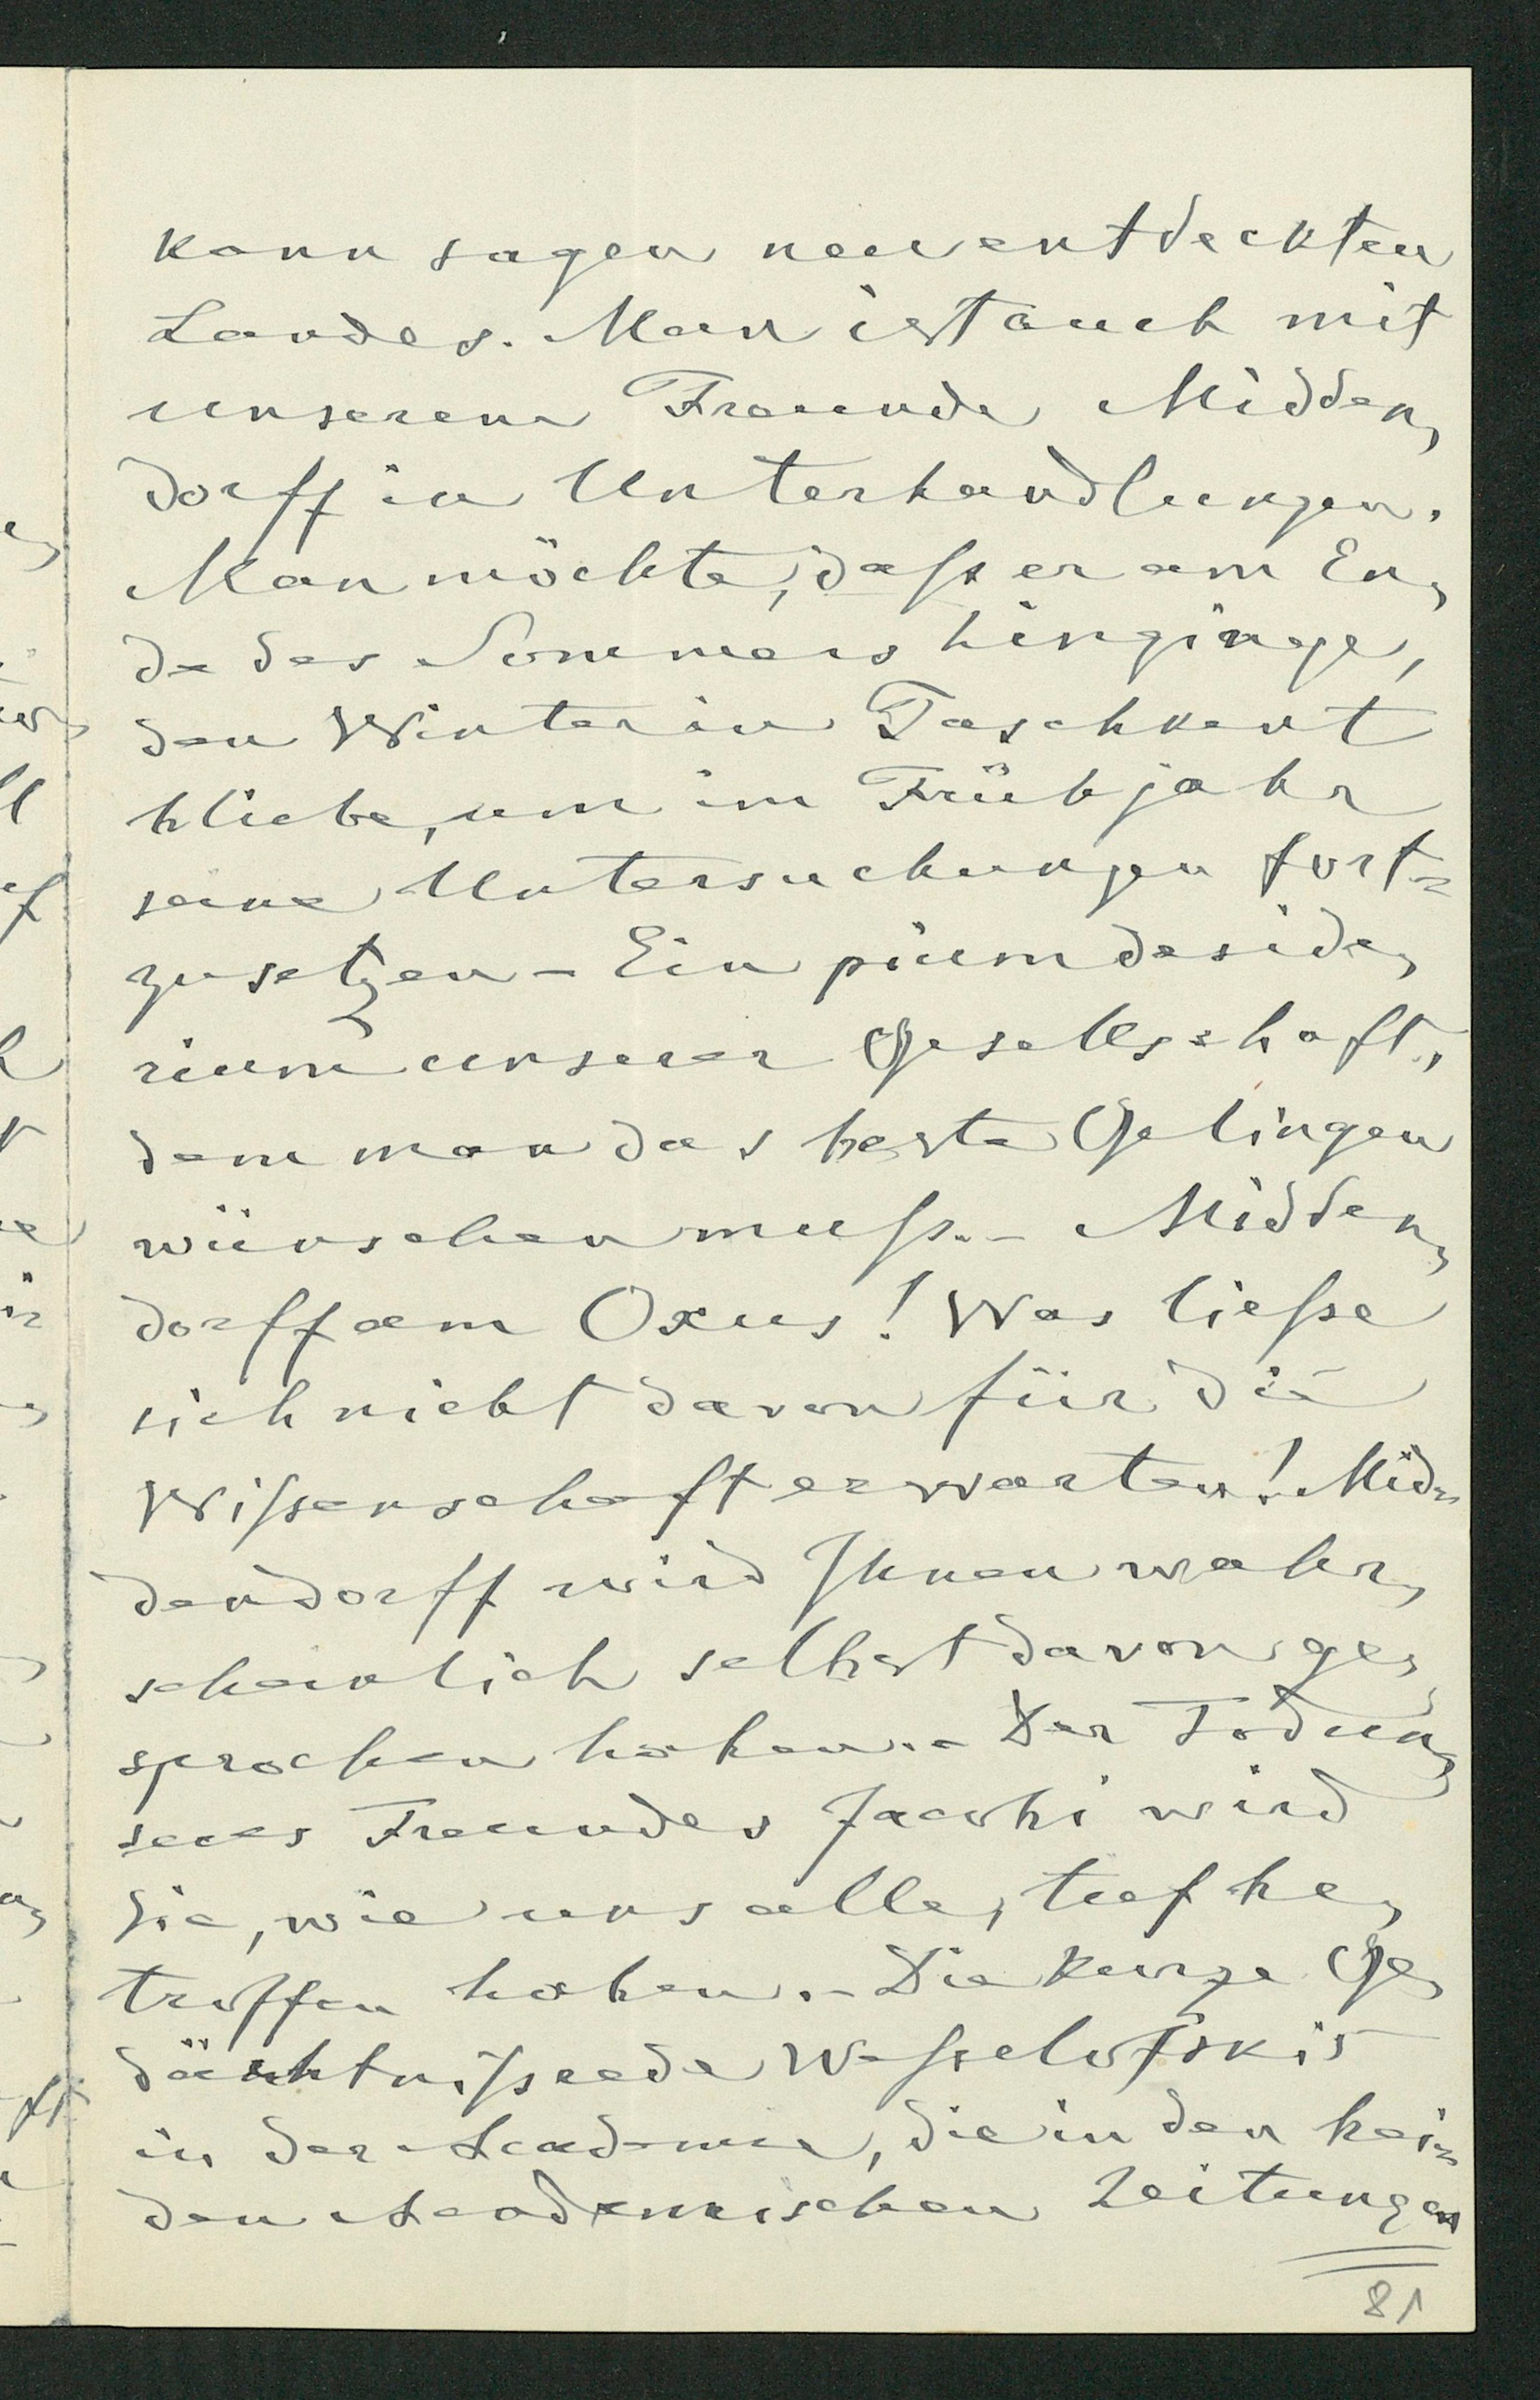 kann sagen neu entdeckten
Landes. Man ist auch mit
unserem Freunde Midden,
dorff in Unterhandlungen.
Man möchte, dass er am En,
de des Sommers hinginge,
den Winter in Taschkent
bliebe, um im Frühjahr
seine Untersuchungen fort=
zusetzen – Ein pium deside,
rium unserer Gesellschaft,
dem man das beste Gelingen
wünschen muss. – Midden,
dorff am Oxus! Was liesse
sich nicht davon für die
Wissenschaft erwarten! Mid=
dendorff wird Ihnen wahr,
scheinlich selbst davon ge,
sprochen haben. – Der Tod un,
seres Freundes Jacobi wird
Sie, wie uns alle, tief be,
troffen haben. – Die kurze Ge,
dächtnissrede Wesselofskis
in der Academie, die in den bei=
den Academischen Zeitungen
81